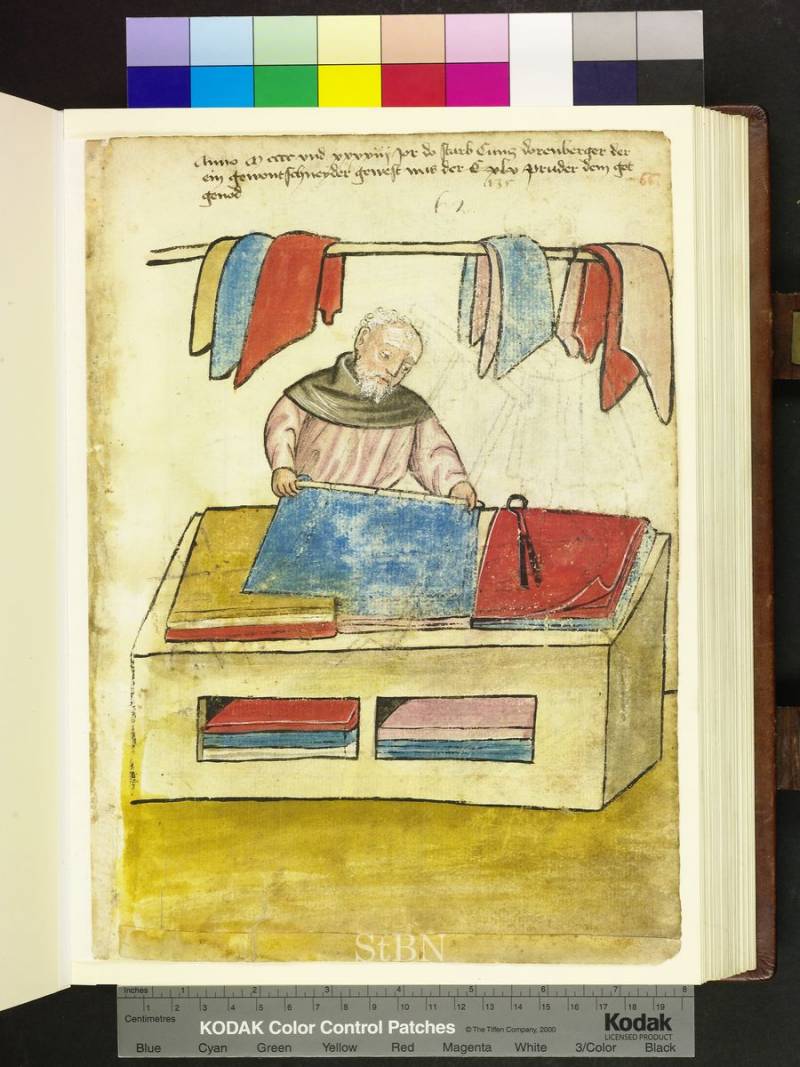 Anno M cccc vnd xxxxiii jor do starb Cunz vorenberger der
ein gewontschneyder gewest was der C xlv Pruder dem got
genod
66
135
StBN
Inches 1 2 3 4 5 6 7 8
Centimetres 1 2 3 4 5 6 7 8 9 10 11 12 13 14 15 16 17 18 19
KODAK Color Control Patches © The Tiffen Company, 2000 Kodak
LICENSED PRODUCT
Blue Cyan Green Yellow Red Magenta White 3/Color Black